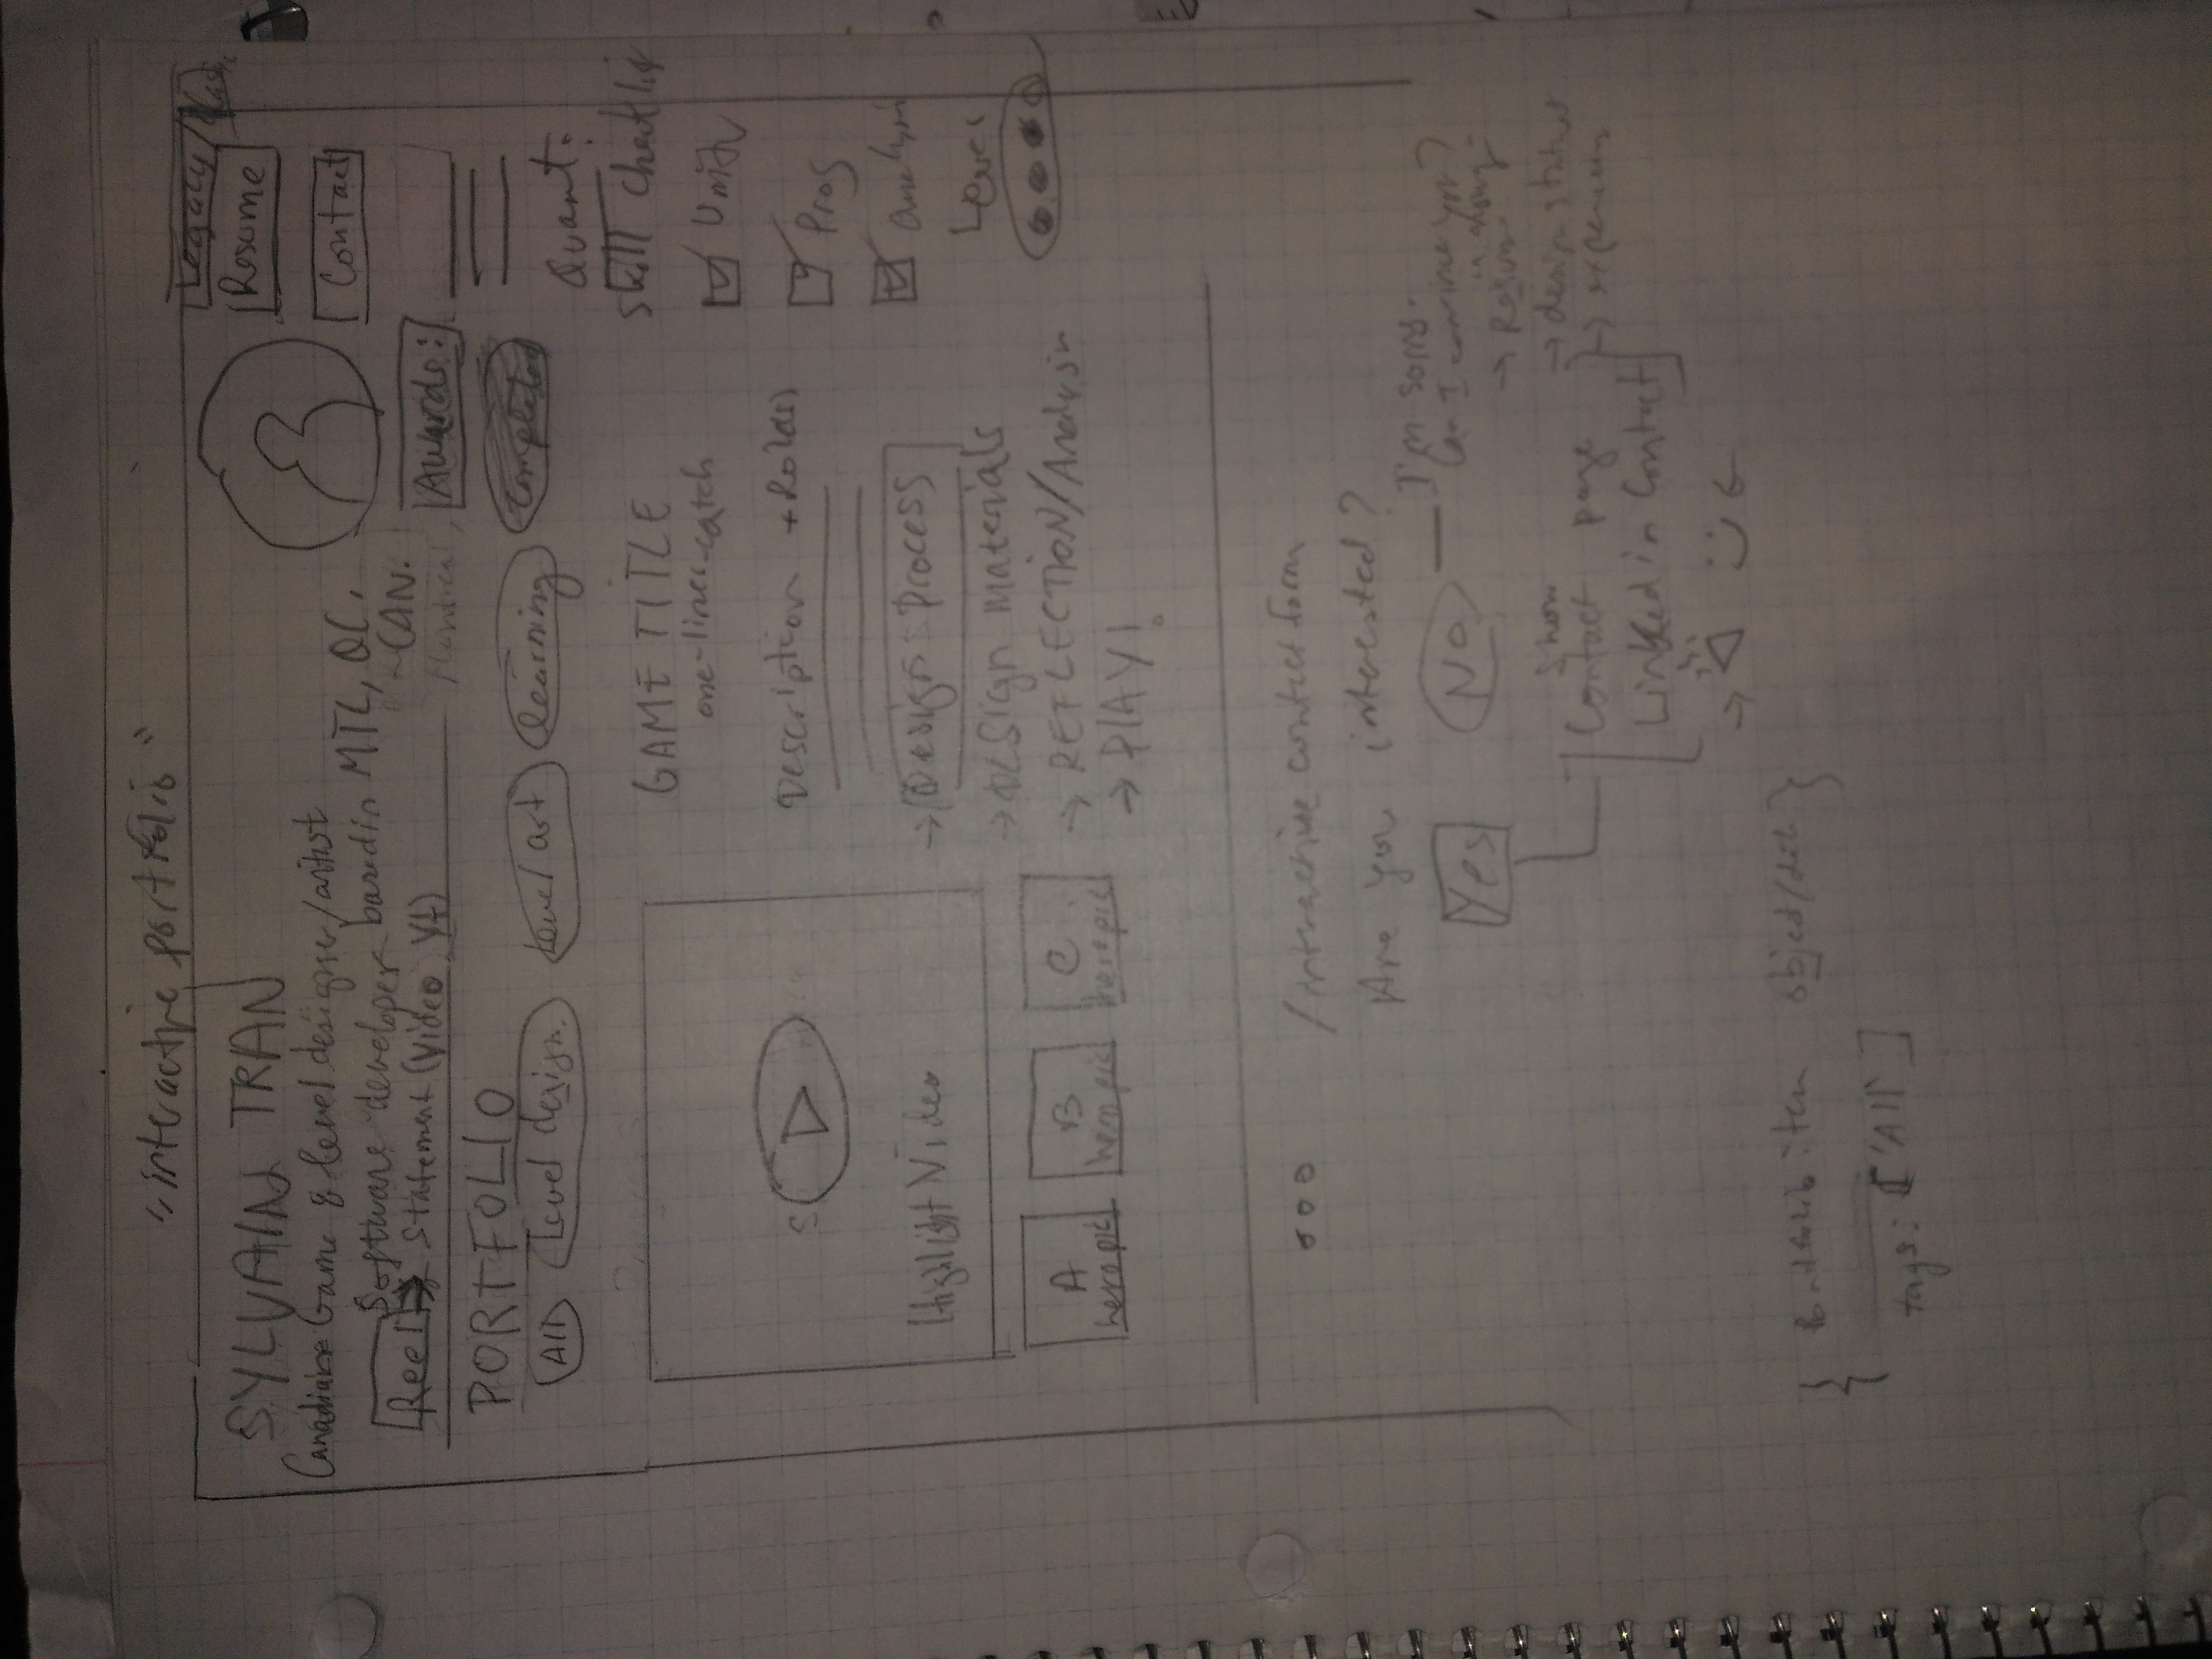 "interactive portfolio"
Legacy/
Resume
Contact
SYLVAIN TRAN
Canadian Game & level designer/artist
Software developer based in MTL, QC.
CAN.
Montreal,
Reel → Statement (Video Yt)
Awards:
PORTFOLIO
All
Level design.
Level art
learning
Completed
Quant:
Skill Checklist
Unity
Prog
Analysis
Level
GAME TITLE
one-liner-catch
Description + Role(s)
S
Highlight Video
→ Design Process
→ DESign materials
→ REFLECTION/Analysis
→ PLAY!
A
hero pic
B
hero pic
C
hero pic
ooo
/interactive contact form
Are you interested?
Yes
No
I'm sorry.
Can I convince you?
→ Resume
→ design statement
→ experience
Show
Contact page
Linked in Contact
→
{ Portfolio item object/data }
tags: ['All']